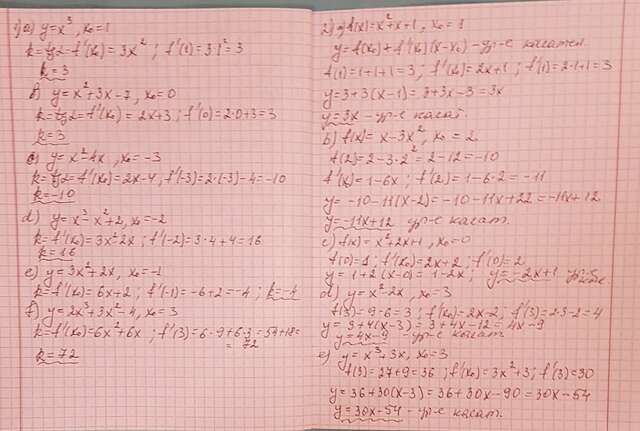 1) a) y=x³, x₀=1
k=tgα=f'(x₀)=3x²; f'(1)=3·1²=3
k=3
b) y=x²+3x-7, x₀=0
k=tgα=f'(x₀)=2x+3; f'(0)=2·0+3=3
k=3
c) y=x²4x, x₀=-3
k=tgα=f'(x₀)=2x-4, f'(-3)=2·(-3)-4=-10
k=-10
d) y=x³-x²+2, x₀=-2
k=f'(x₀)=3x²2x; f'(-2)=3·4+4=16
k=16
e) y=3x²+2x, x₀=-1
k=f'(x₀)=6x+2; f'(-1)=-6+2=-4; k=-4
f) y=2x³+3x²-4, x₀=3
k=f'(x₀)=6x²+6x; f'(3)=6·9+6·3=54+18=
=72
k=72
2) a) f(x)=x²+x+1, x₀=1
y=f(x₀)+f'(x₀)(x-x₀)-ур-е касател.
f(1)=1+1+1=3; f'(x₀)=2x+1; f'(1)=2·1+1=3
y=3+3(x-1)=3+3x-3=3x
y=3x-ур-е касат.
b) f(x)=x-3x², x₀=2
f(2)=2-3·2²=2-12=-10
f'(x)=1-6x; f'(2)=1-6·2=-11
y=-10-11(x-2)=-10-11x+22=-11x+12
y=-11x+12 ур-е касат.
c) f(x)=x²+2x+1, x₀=0
f(0)=1; f'(x₀)=2x+2; f'(0)=2
y=1+2(x-0)=1-2x; y=-2x+1 ур-е
d) y=x²-2x, x₀=3
f(3)=9-6=3; f'(x₀)=2x-2; f'(3)=2·3-2=4
y=3+4(x-3)=3+4x-12=4x-9
y=4x-9 -ур-е касат
e) y=x³+3x, x₀=3
f(3)=27+9=36; f'(x₀)=3x²+3; f'(3)=30
y=36+30(x-3)=36+30x-90=30x-54
y=30x-54-ур-е касат.